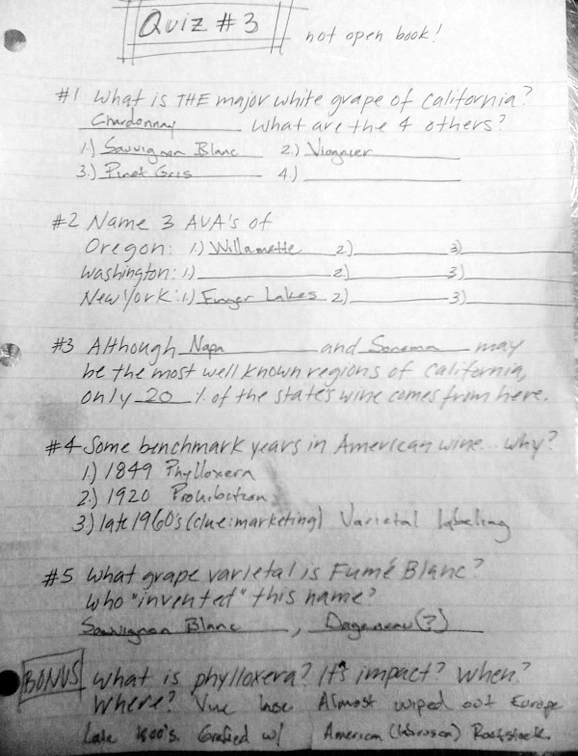 Quiz #3 not open book!
#1 What is THE major white grape of California?
Chardonnay What are the 4 others?
1.) Sauvignon Blanc 2.) Viognier
3.) Pinot Gris 4.)
#2 Name 3 AVA's of
Oregon: 1) Willamette 2) 3)
Washington: 1) 2) 3)
New York: 1) Finger Lakes 2) 3)
#3 Although Napa and Sonoma may
be the most well known regions of California,
only 20 % of the state's wine comes from here.
#4 Some benchmark years in American wine... why?
1.) 1849 Phylloxera
2.) 1920 Prohibition
3) late 1960's (clue: marketing) Varietal labeling
#5 What grape varietal is Fumé Blanc?
Who "invented" this name?
Sauvignon Blanc , Dageneau(?)
BONUS What is phylloxera? It's impact? When?
Where? Vine louse Almost wiped out Europe
Late 1800's. Grafted w/ American Rootstock.